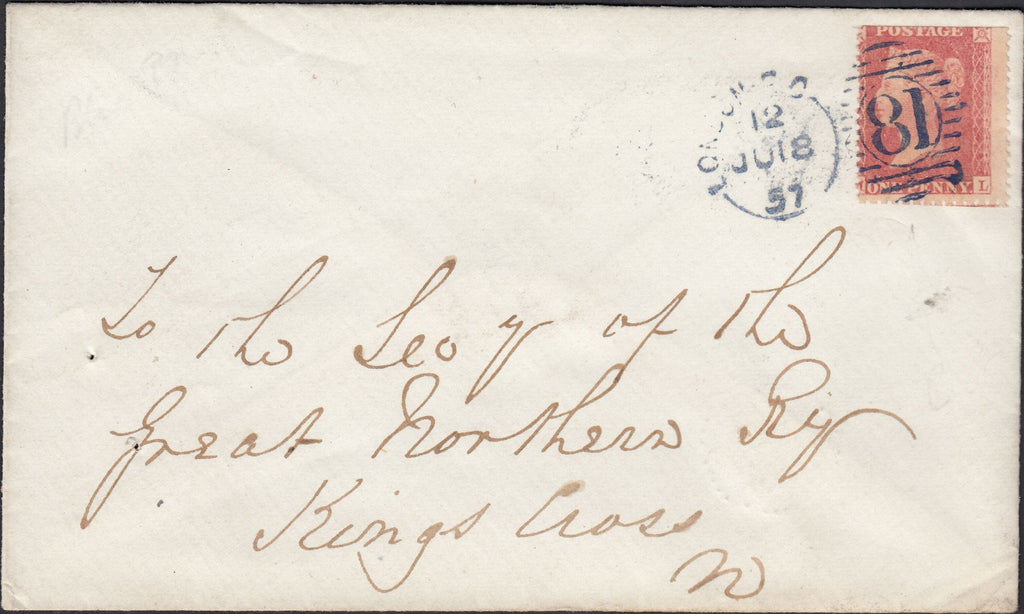 POSTAGE
LONDON
12
JU 18
57
18
ONE PENNY L
To the Secy of the
Great Northern Ry
Kings Cross
N